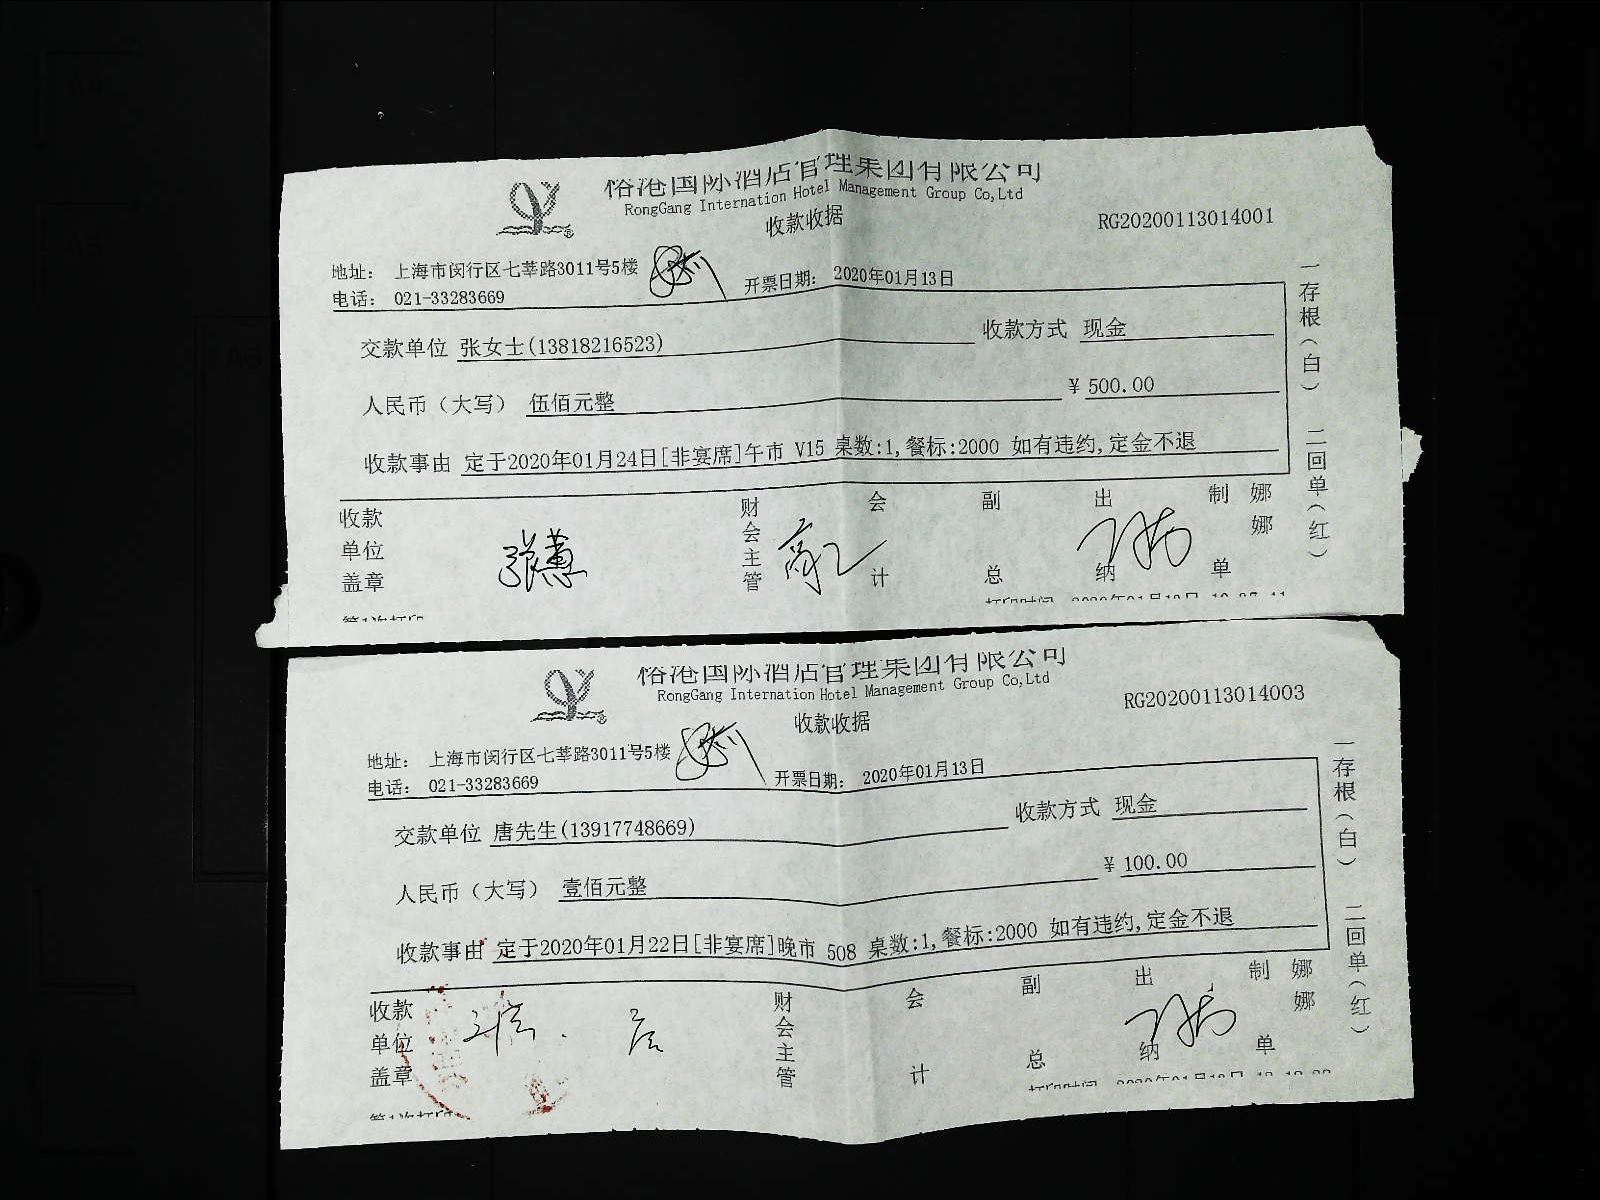 裕港国际酒店管理集团有限公司
RongGang Internation Hotel Management Group Co,Ltd
收款收据
RG20200113014001
地址： 上海市闵行区七莘路3011号5楼
电话： 021-33283669
开票日期： 2020年01月13日
交款单位 张女士(13818216523)
收款方式 现金
人民币（大写） 伍佰元整
¥ 500.00
收款事由 定于2020年01月24日[非宴席]午市 V15 桌数:1,餐标:2000 如有违约,定金不退
收款单位盖章
财会主管
会计
副总
出纳
制单
娜娜
一存根（白） 二回单（红）
第1次打印
裕港国际酒店管理集团有限公司
RongGang Internation Hotel Management Group Co,Ltd
收款收据
RG20200113014003
地址： 上海市闵行区七莘路3011号5楼
电话： 021-33283669
开票日期： 2020年01月13日
交款单位 唐先生(13917748669)
收款方式 现金
人民币（大写） 壹佰元整
¥ 100.00
收款事由 定于2020年01月22日[非宴席]晚市 508 桌数:1,餐标:2000 如有违约,定金不退
收款单位盖章
财会主管
会计
副总
出纳
制单
娜娜
一存根（白） 二回单（红）
第1次打印